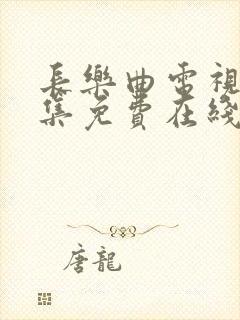 長樂曲電視
集免費在綫
唐龍